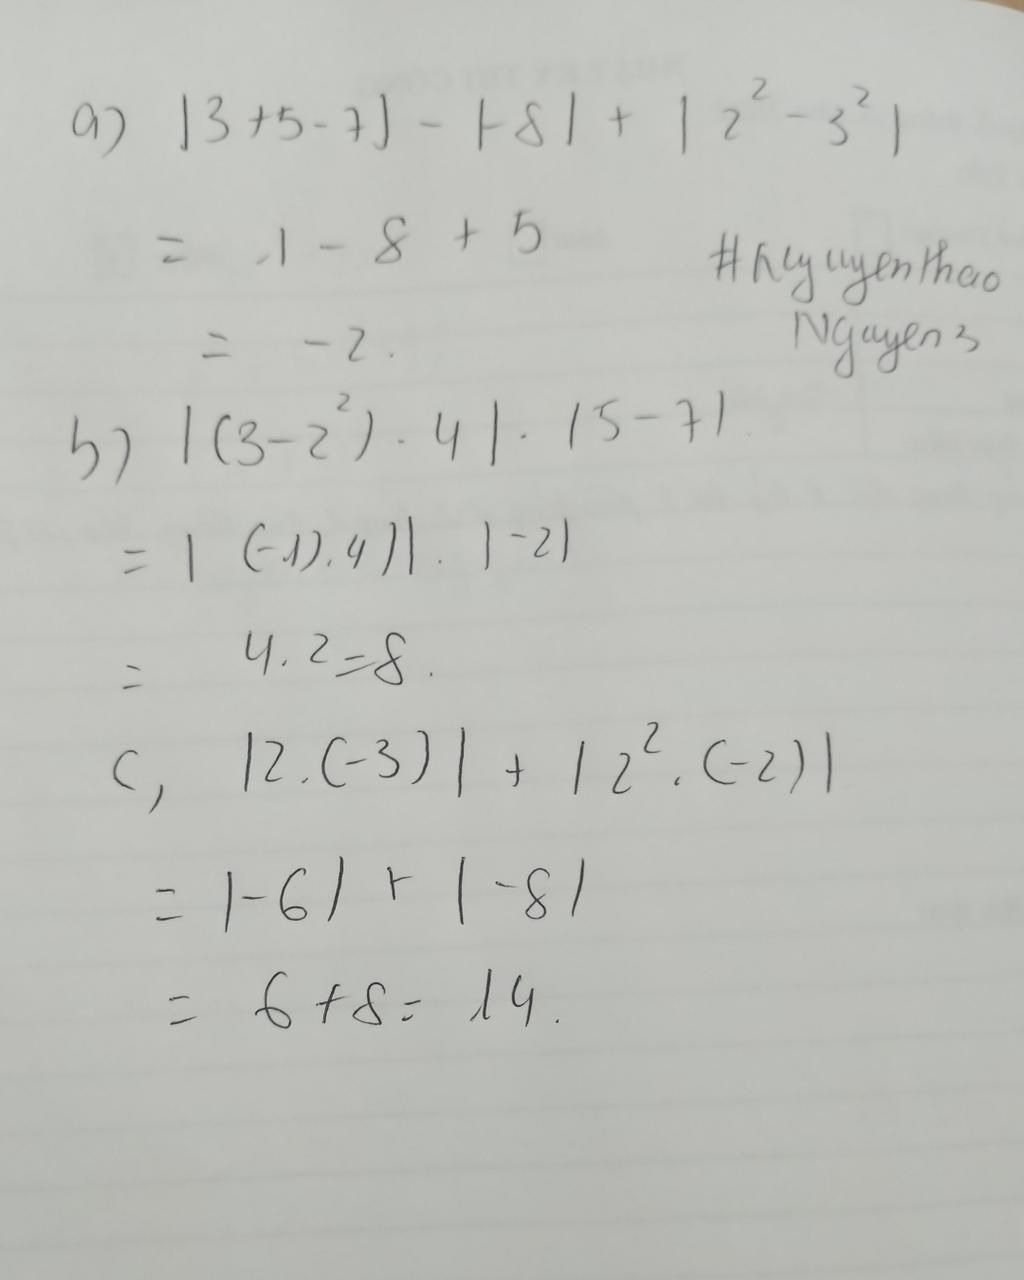 a) |3+5-7| - |-8| + |2² - 3²|
= 1 - 8 + 5
#nguyenthao
= -2.
Nguyen3
b) |(3-2²) . 4| . |5-7|
= | (-1).4)| . |-2|
= 4.2=8.
c, |2.(-3)| + |2².(-2)|
= |-6| + |-8|
= 6+8= 14.